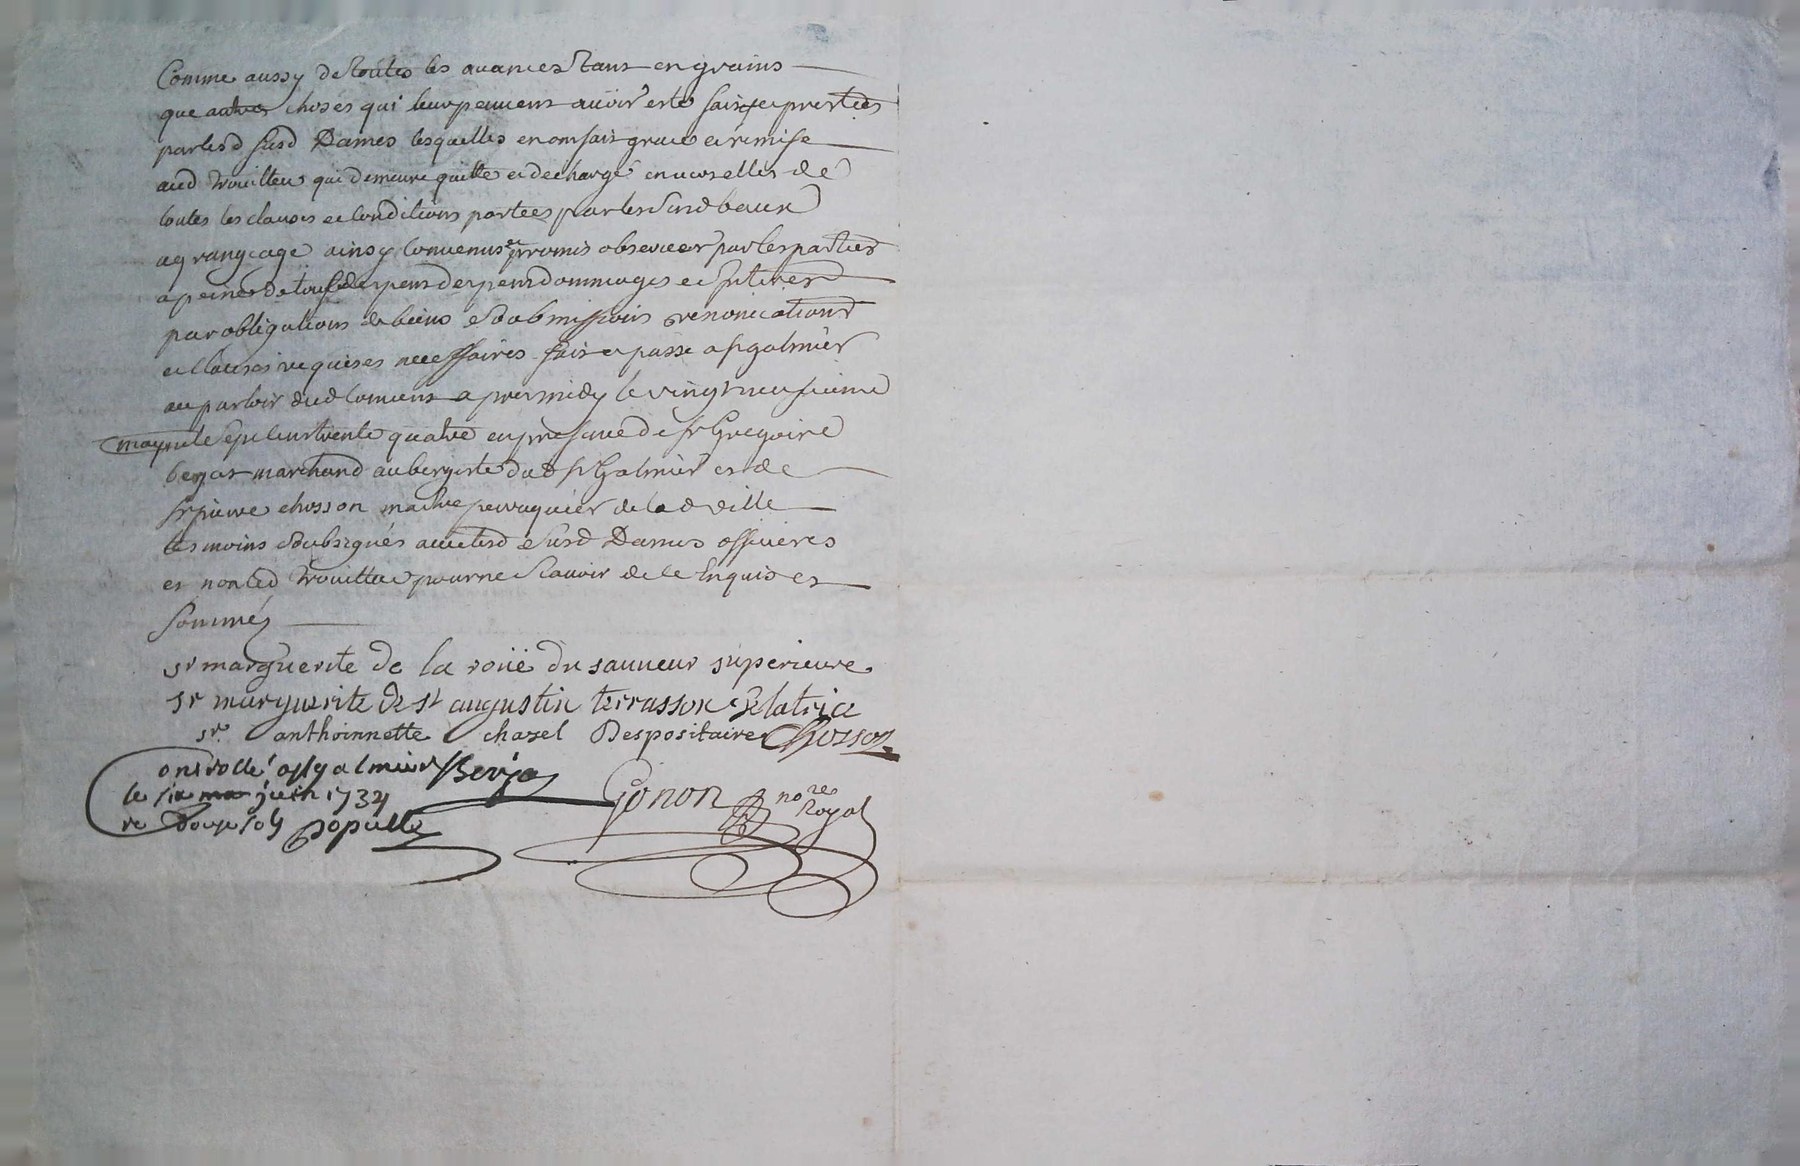 Comme aussy de touttes les avances tant en grains
que autres choses qui leur peuvent avoir esté faites et prestées
par lesd susd Dames lesquelles en ont fait grace et remise
aud trouilleu qui demeure quitte et dechargé envers elles de
toutes les clauses et conditions portees par les susd baux
a grangeage ainsy convenus et promis observer par les parties
a peines de tous despens dommages et interest
par obligations de biens soubmissions renonciations
et clauses requises necessaires fait et passé a st galmier
au parloir dud convent apres midy le vingt neufieme
may mil sept cens trente quatre en presence de sr Gregoire
berjat marchand aubergiste dud st Galmier et de
sr pierre chosson maitre perruquier de lad ville
tesmoins soubsignés avec lesd susd Dames officieres
et non led trouilleu pour ne scavoir de ce Enquis et
sommés
sr marguerite de la roüe du sauveur superieure
sr marguerite de st augustin terrasson Zelatrice
sr anthoinnette chazel Despositaire Chosson
controllé a st galmier Berjat
le six juin 1734 Gonon nore Royal
re douze sols populle